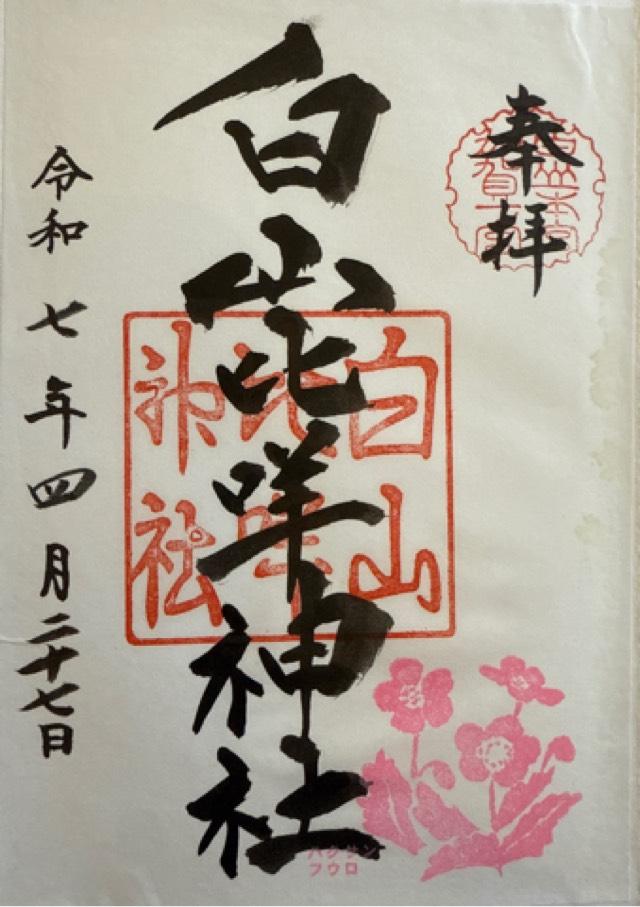 奉拝
加賀一宮
白山比咩神社
白山
比咩
神社
令和七年四月二十七日
ハクサン
フウロ